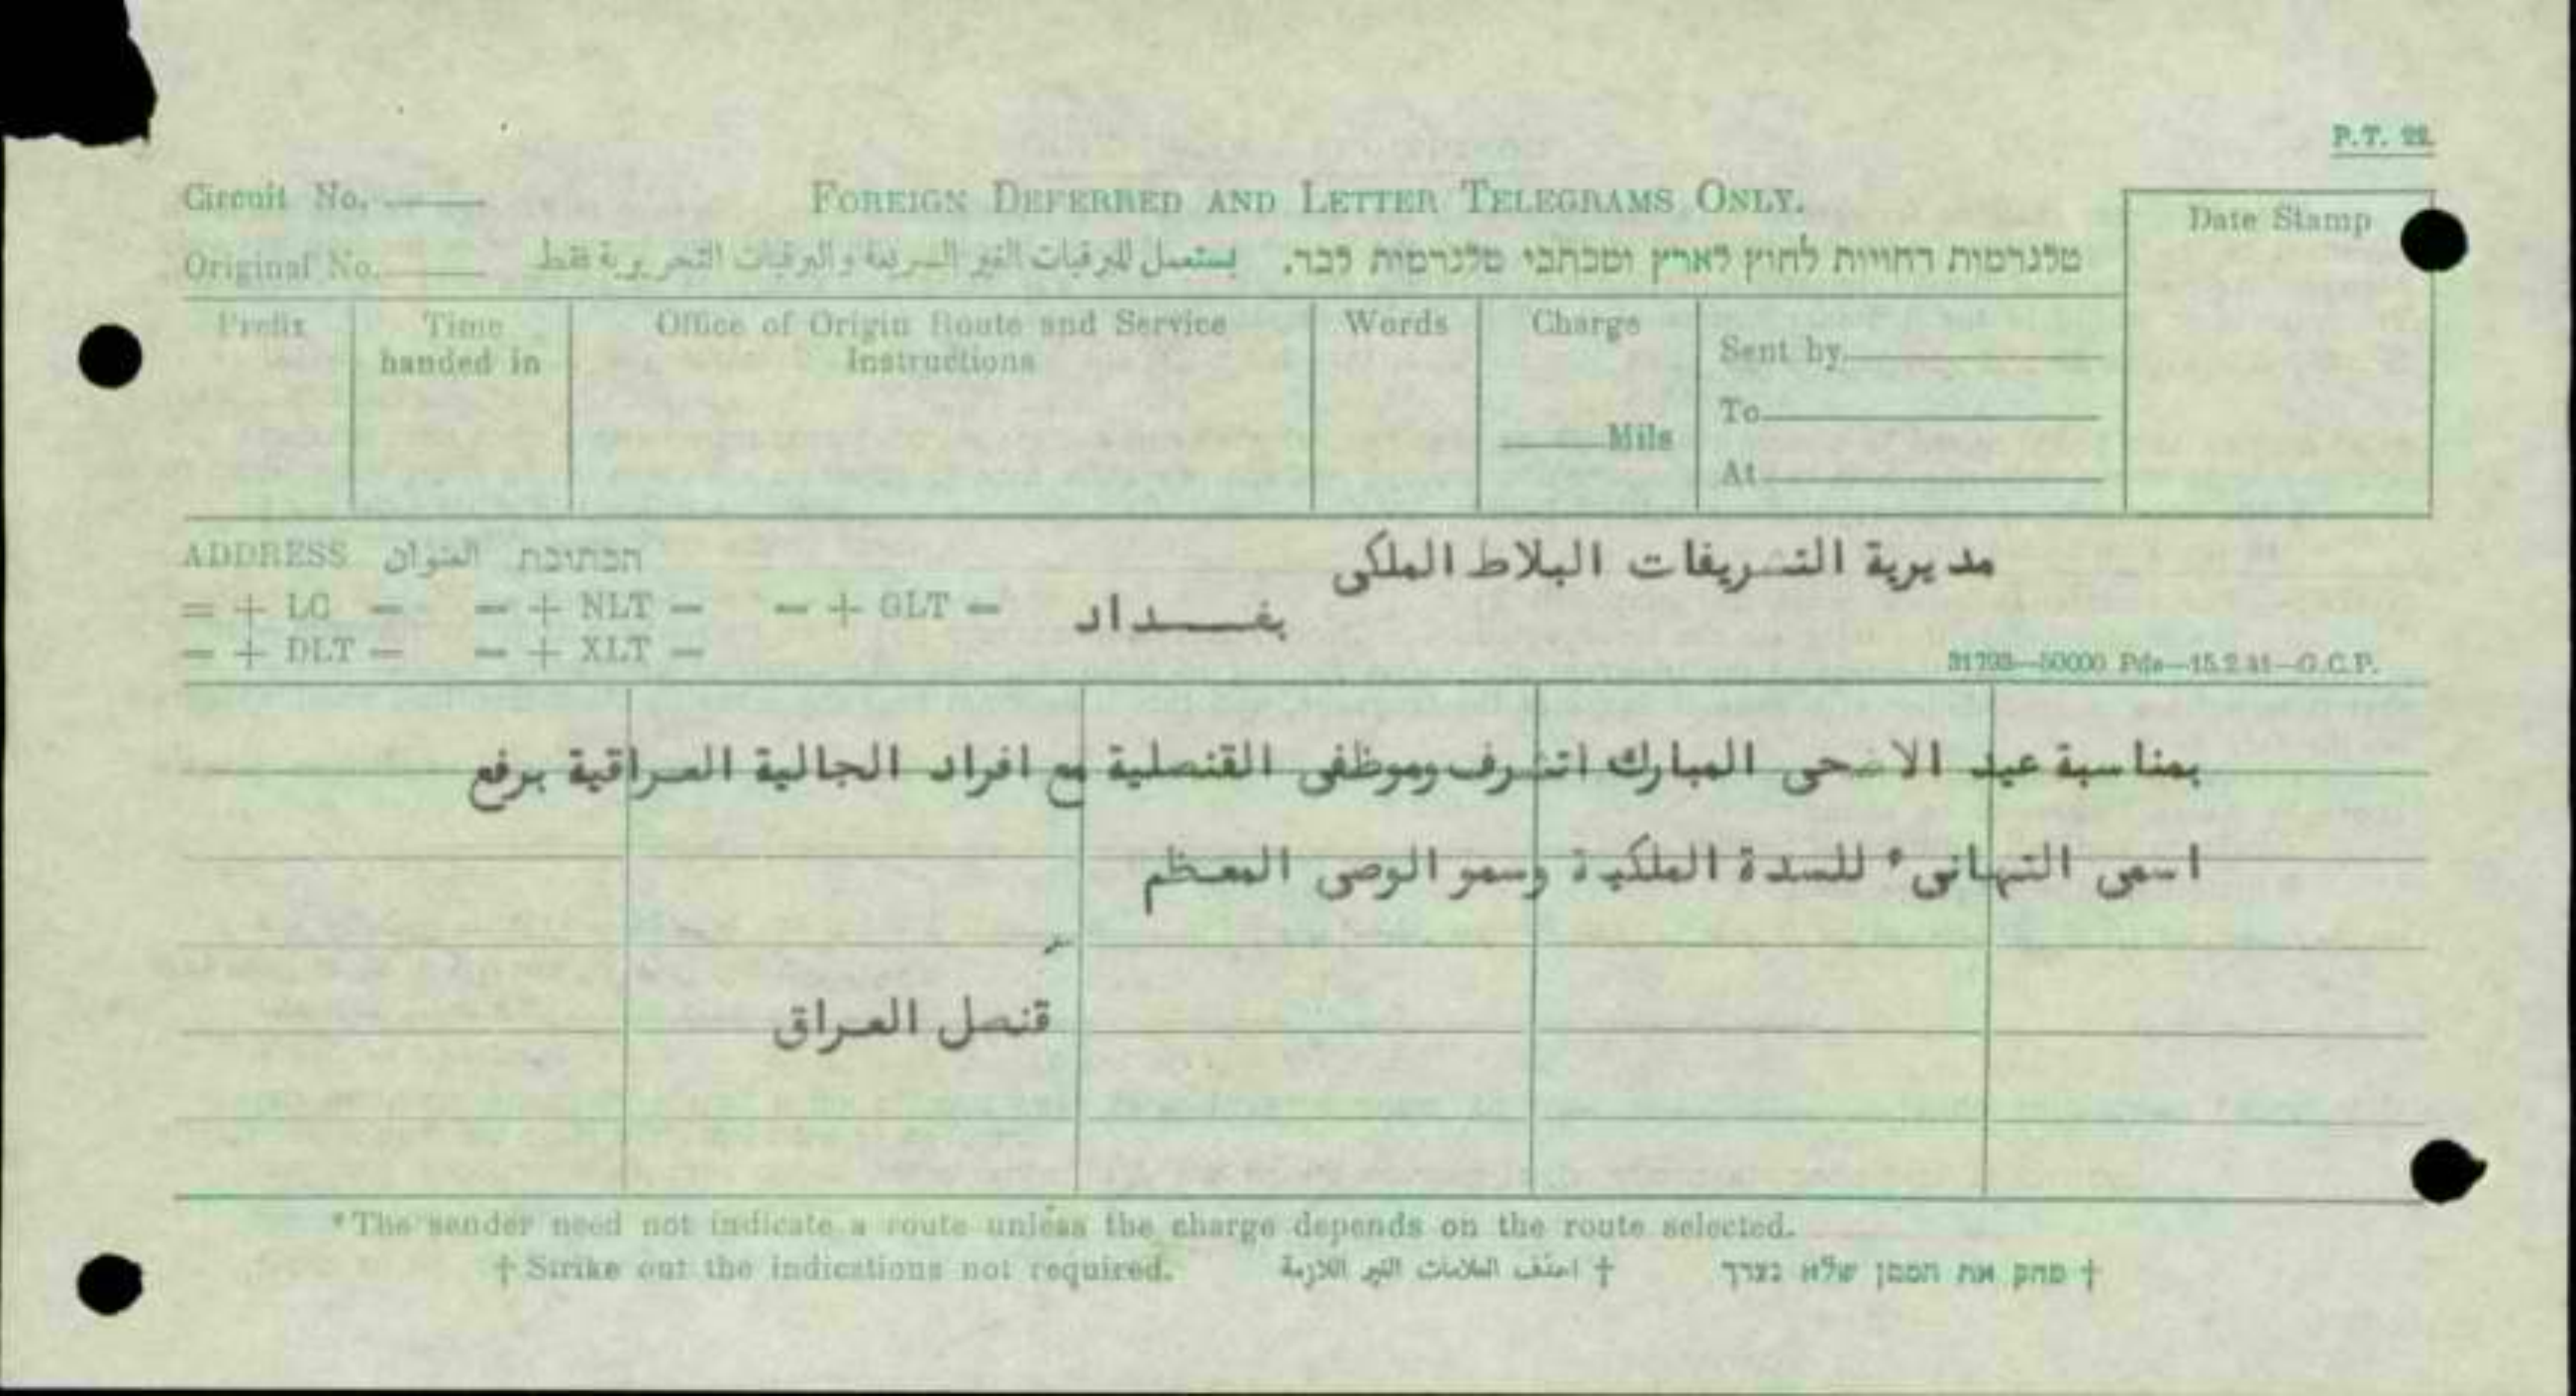 P.T. 22.
Circuit No.
FOREIGN DEFERRED AND LETTER TELEGRAMS ONLY.
Date Stamp
Original No.
يستعمل للبرقيات الغير السريعة والبرقيات التحريرية فقط
טלגרמות דחויות לחוץ לארץ ומכתבי טלגרמות לבד.
Prefix
Time handed in
Office of Origin Route and Service Instructions
Words
Charge
Mils
Sent by
To
At
ADDRESS العنوان הכתובת
مديرية التشريفات البلاط الملكى
= + LC - - + NLT - - + GLT -
بغداد
- + DLT - - + XLT -
31793—50000 Pds—15.2.41—G.C.P.
بمناسبة عيد الاضحى المبارك اتشرف وموظفى القنصلية مع افراد الجالية العراقية برفع
اسمى التهانىء للسدة الملكية وسمو الوصى المعظم
قنصل العراق
*The sender need not indicate a route unless the charge depends on the route selected.
† Strike out the indications not required.
† احذف العلامات الغير اللازمة
† מחק את הסמן שלא נצרך